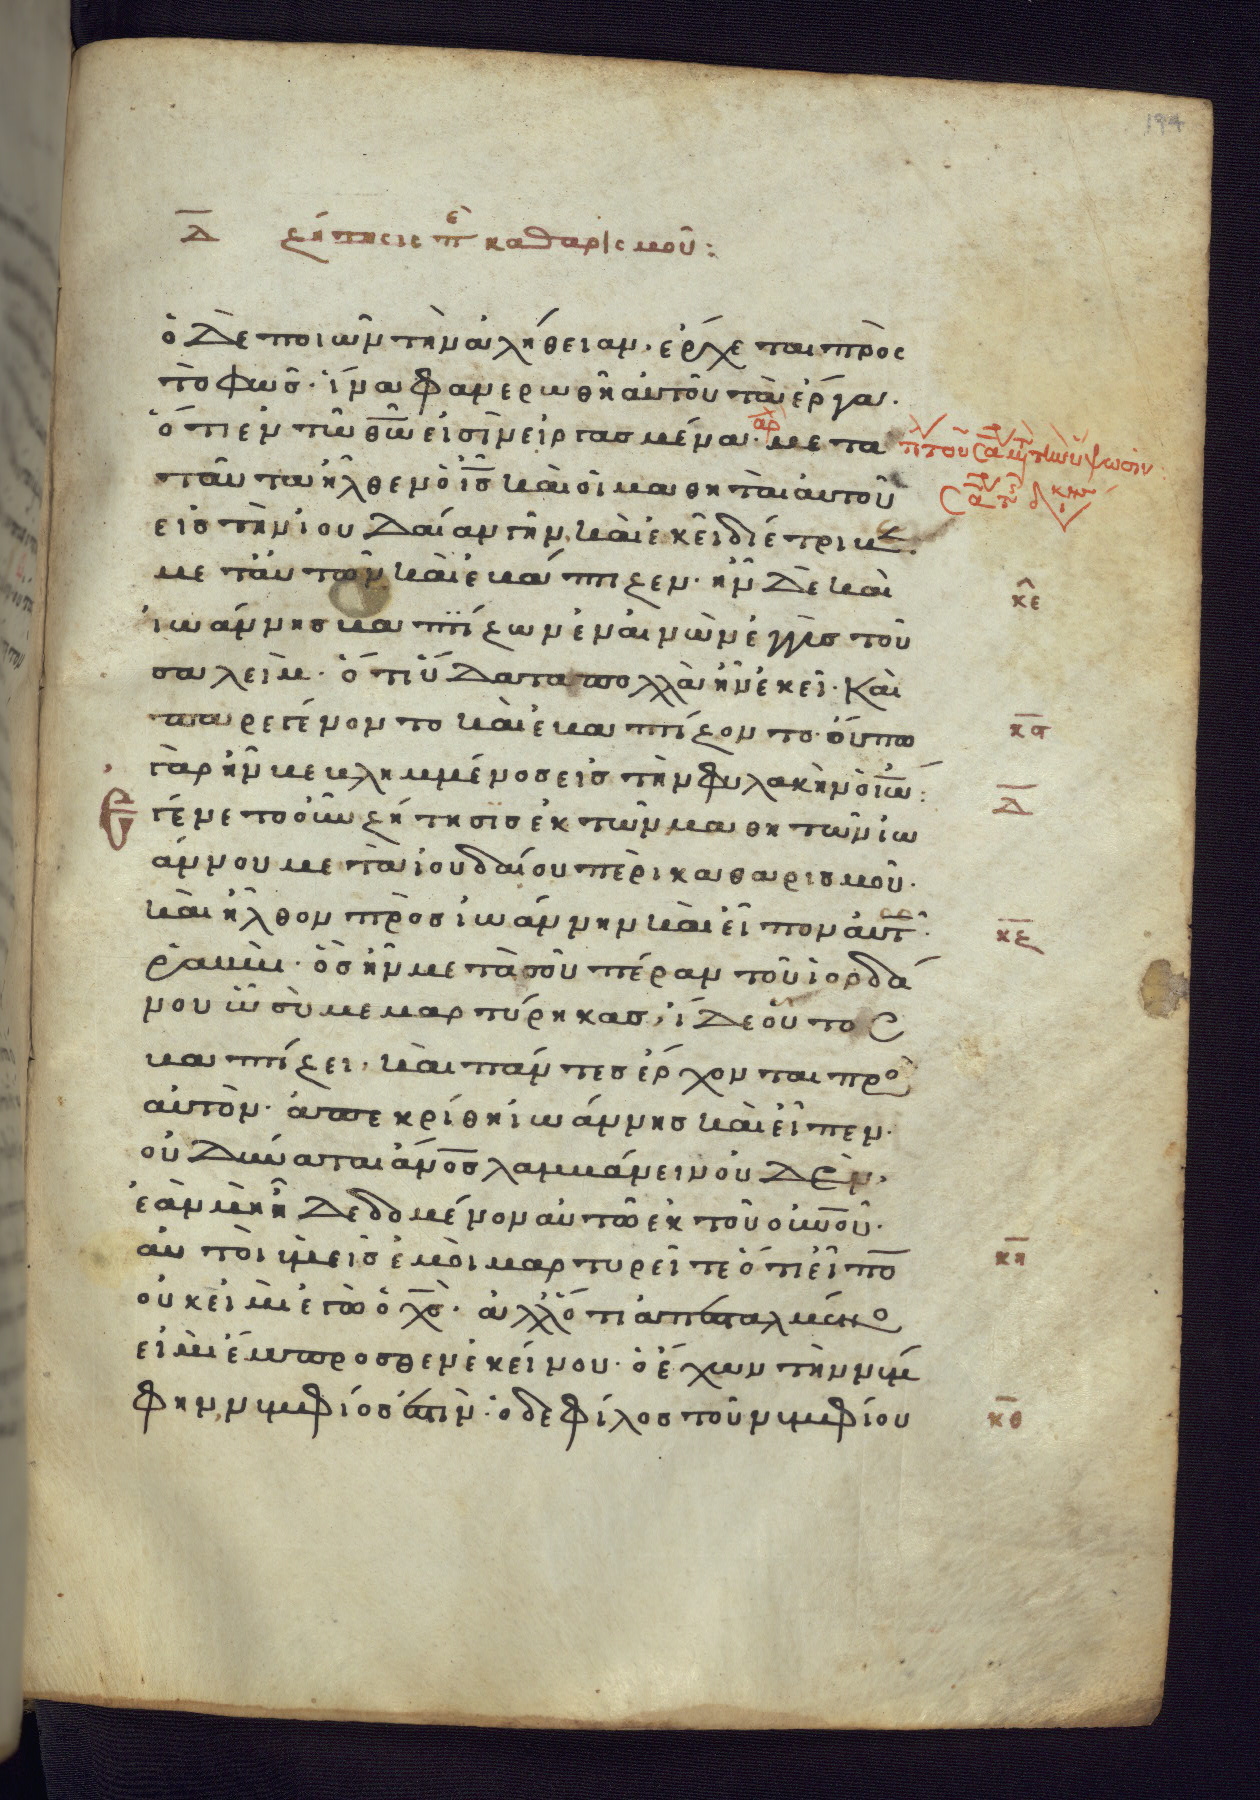 194
Δ ζήτησις π καθαρισμοῦ:
ὁ δὲ ποιῶν τὴν ἀλήθειαν· ἔρχεται πρὸς
τὸ φῶς· ἵνα φανερωθῆ αὐτοῦ τὰ ἔργα·
ὅτι ἐν θῶ εἰσὶν εἰργασμένα· μετα
ταῦτα ἦλθεν ὁ ἰς καὶ οἱ μαθηταὶ αὐτοῦ
εἰς τὴν ἰουδαίαν γῆν, καὶ ἐκεῖ διέτριβε
μετ' αὐτῶν καὶ ἐβάπτιζεν· ἦν δὲ καὶ
κε
ἰωάννης βαπτίζων ἐν αἰνὼν ἐγγὺς τοῦ
σαλείμ· ὅτι ὕδατα πολλὰ ἦν ἐκεῖ· Καὶ
παρεγένοντο καὶ ἐβαπτίζοντο· οὔπω
κς
γὰρ ἦν βεβλημένος εἰς τὴν φυλακὴν ὁ ἰω:
Δ
Ἐγένετο οὖν ζήτησις ἐκ τῶν μαθητῶν ἰω
άννου μετὰ ἰουδαίου περὶ καθαρισμοῦ·
καὶ ἦλθον πρὸς ἰωάννην καὶ εἶπον αὐτ·
κζ
ῥαββὶ· ὃς ἦν μετὰ σοῦ πέραν τοῦ ἰορδά
νου ὧ σὺ μεμαρτύρηκας, ἴδε οὗτος
βαπτίζει· καὶ πάντες ἔρχονται προ
αὐτὸν· ἀπεκρίθη ἰωάννης καὶ εἶπεν·
οὐ δύναται ἄνος λαμβάνειν οὐδὲν,
ἐὰν μὴ ἦ δεδομένον αὐτῶ ἐκ τοῦ οὐνοῦ·
αὐτοὶ ὑμεῖς ἐμοὶ μαρτυρεῖτε ὅτι εἶπο
κη
οὐκ εἰμὶ ἐγὼ ὁ χς· ἀλλ' ὅτι ἀπεσταλμένο
εἰμὶ ἔμπροσθεν ἐκείνου· ὁ ἔχων τὴν νύμ
φην νυμφίος ἐστὶν· ὁ δε φίλος τοῦ νυμφίου
κθ